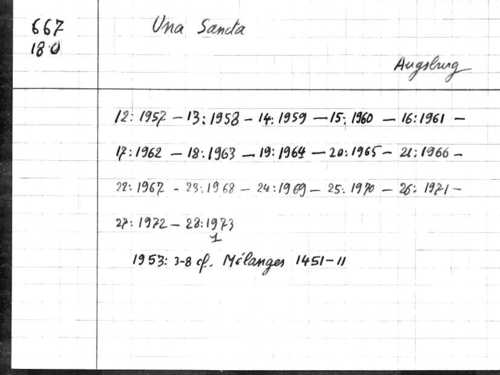 667
180
Una Sancta
Augsburg
12: 1957 – 13: 1958 – 14: 1959 – 15: 1960 – 16: 1961 –
17: 1962 – 18: 1963 – 19: 1964 – 20: 1965 – 21: 1966 –
22: 1967 - 23: 1968 – 24: 1969 – 25: 1970 – 26: 1971 –
27: 1972 – 28: 1973
1
1953: 3-8 cf. Mélanges 1451-11